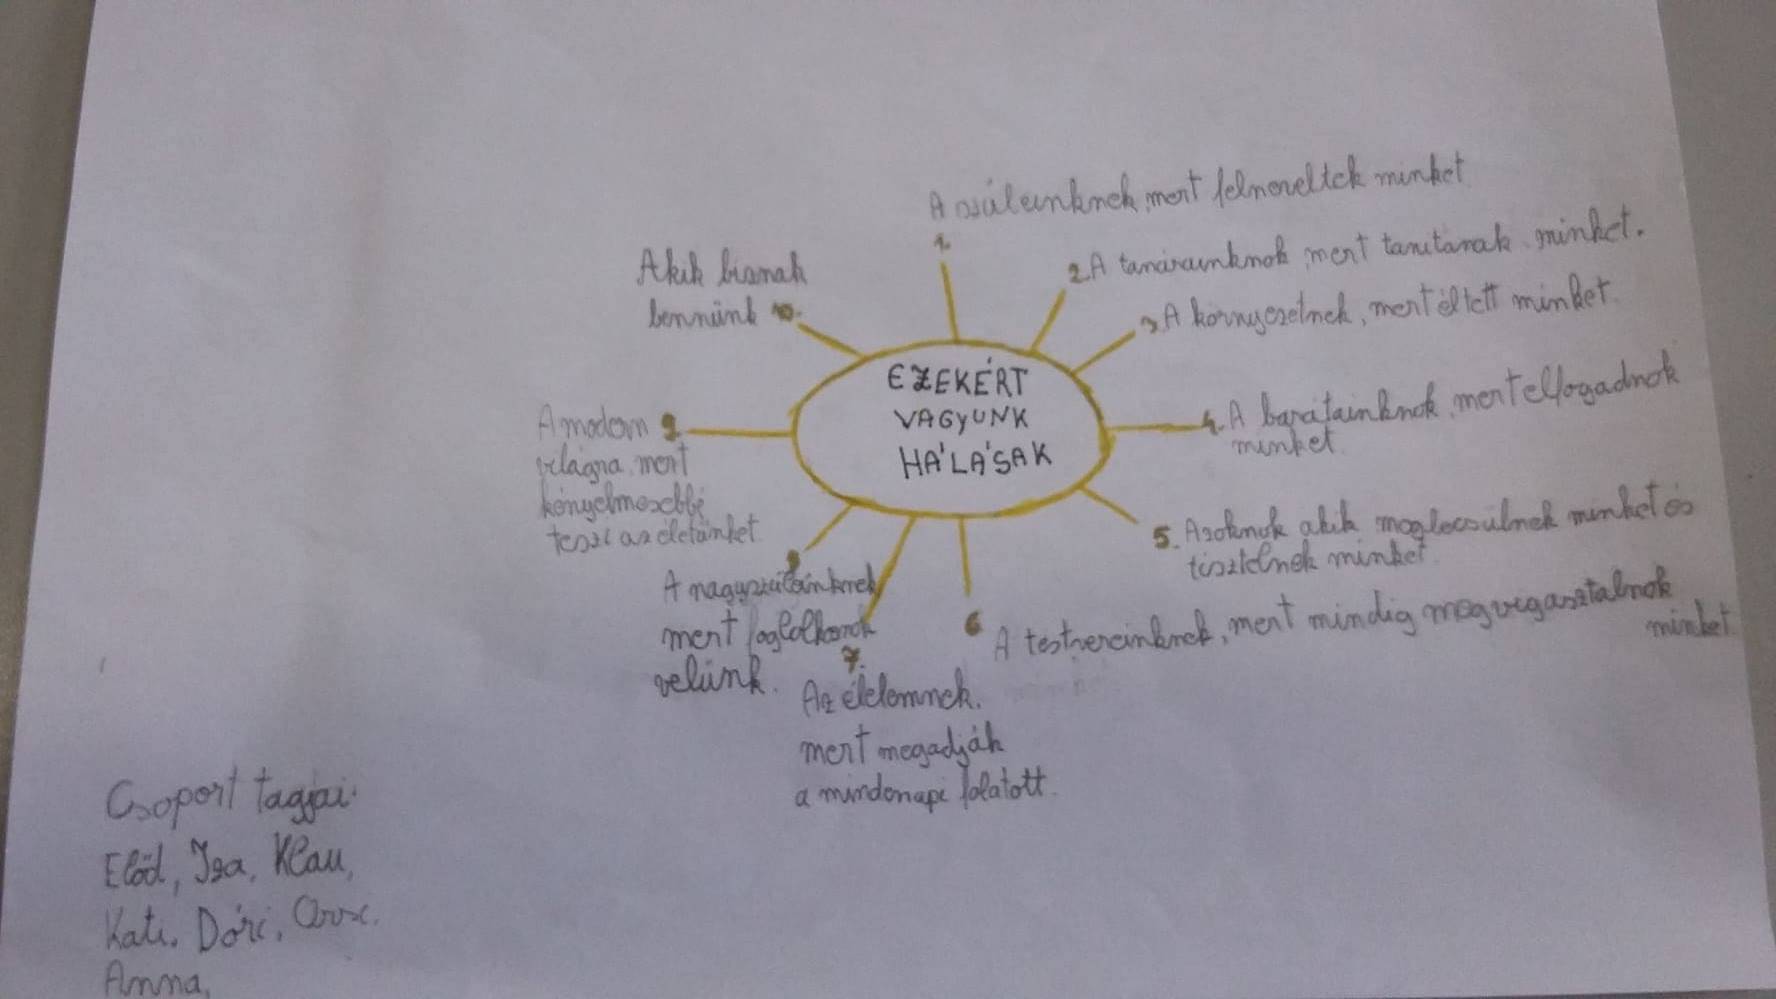 EZEKÉRT
VAGYUNK
HÁLÁSAK
1.
A szüleinknek, mert felneveltek minket
2. A tanárainknak, mert tanítanak minket.
3. A környezetnek, mert éltett minket.
4. A barátainknak, mert elfogadnak
minket.
5. Azoknak akik megbecsülnek minket és
tisztelnek minket.
6
A testvéreinknek, mert mindig megvigasztalnak
minket
7.
Az élelemnek.
mert megadják
a mindenapi falatott.
8
A nagyszüleinknek
mert foglalkoznak
velünk.
A modern 9.
világna, mert
kényelmesebbé
teszi az életünket.
Akik bíznak
bennünk 10.
Csoport tagjai:
Előd, Iza, Klau,
Kati, Dóri,
Anna,